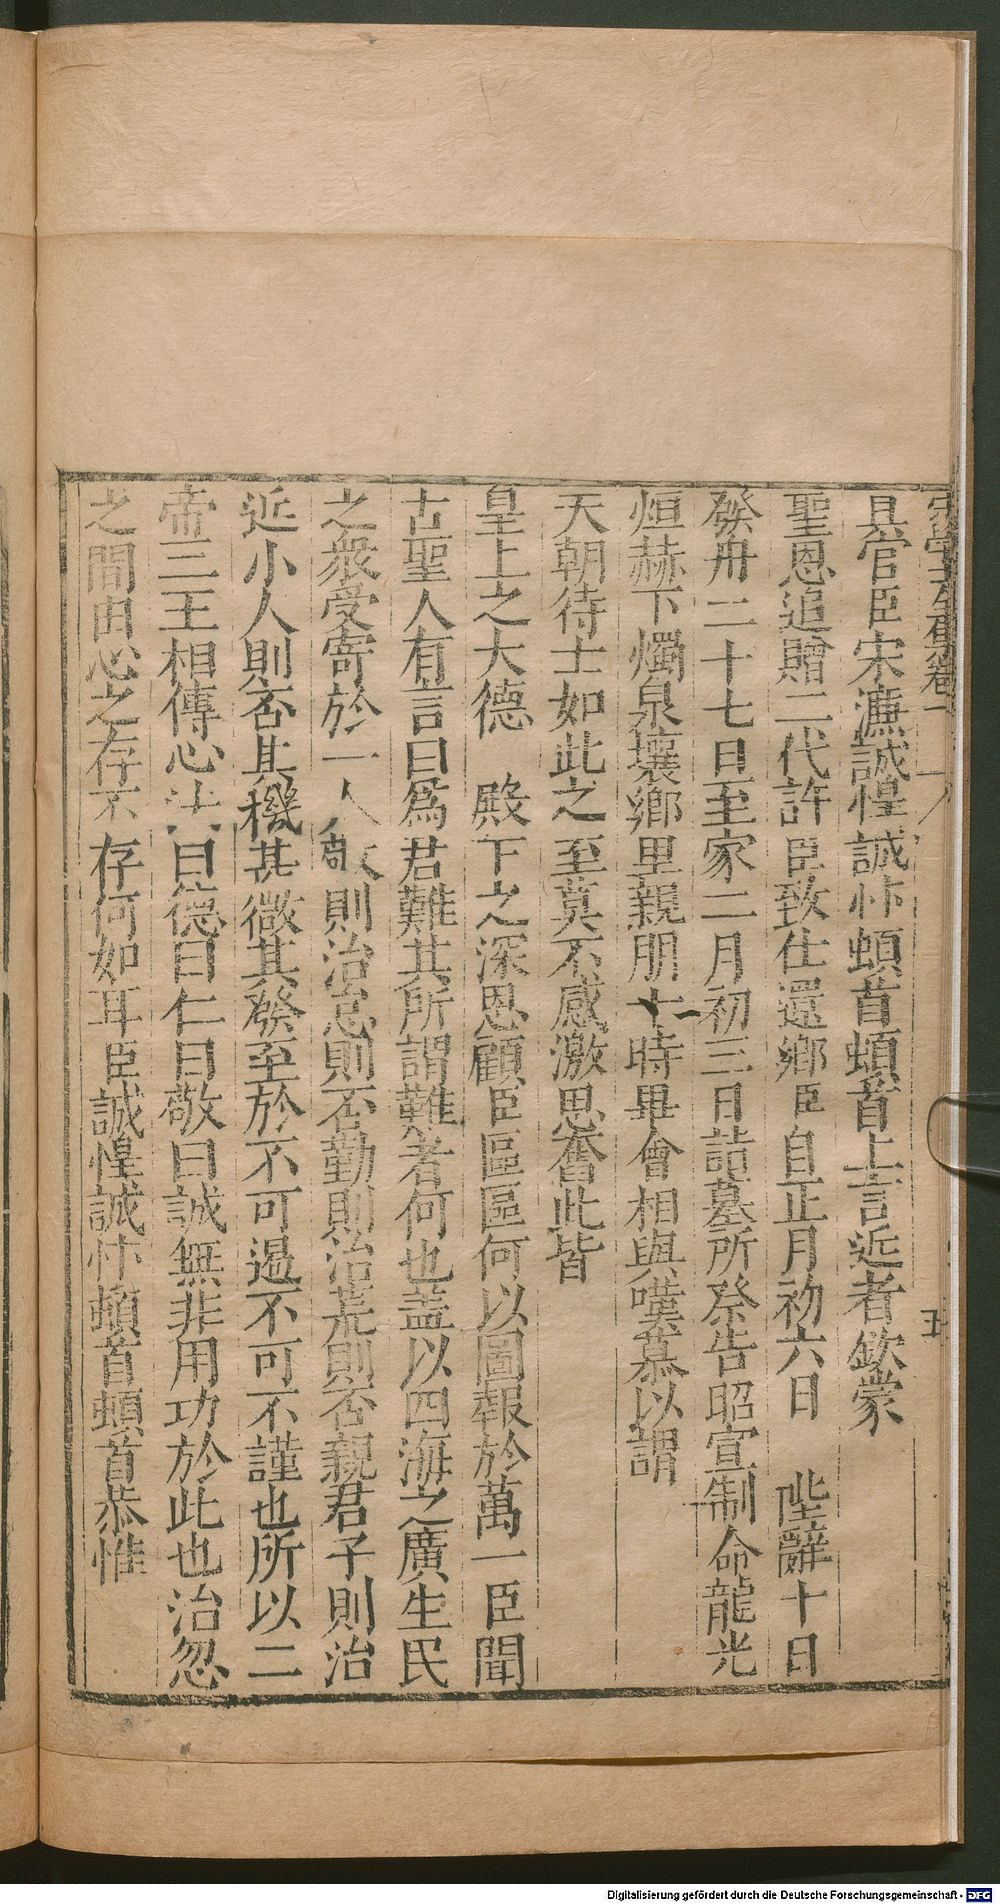 具官臣宋濂誠惶誠忭頓首頓首上言近者欽蒙
聖恩追贈二代許臣致仕還鄉臣自正月初六日　陛辭十日
發舟二十七日至家二月初三日詣墓所祭告昭宣制命龍光
烜赫下燭泉壤鄉里親朋一時畢會相與嘆慕以謂
天朝待士如此之至莫不感激思奮此皆
皇上之大德　殿下之深恩顧臣區區何以圖報於萬一臣聞
古聖人有言曰為君難其所謂難者何也蓋以四海之廣生民
之衆受寄於一人敬則治怠則否勤則治荒則否親君子則治
近小人則否其機甚微其發至於不可遏不可不謹也所以二
帝三王相傳心法曰德曰仁曰敬曰誠無非用功於此也治忽
之間由心之存不存何如耳臣誠惶誠忭頓首頓首恭惟
五
Digitalisierung gefördert durch die Deutsche Forschungsgemeinschaft - DFG